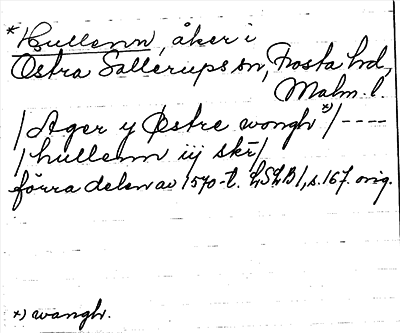 *Hullenn, åker i
Östra Sallerups sn, Frosta hd,
Malm. l.
/Ager y Østre wongh*)/----
/hullenn iij skr/
förra delen av 1570-t. LSLB1, s. 167. orig.
*) wangh.